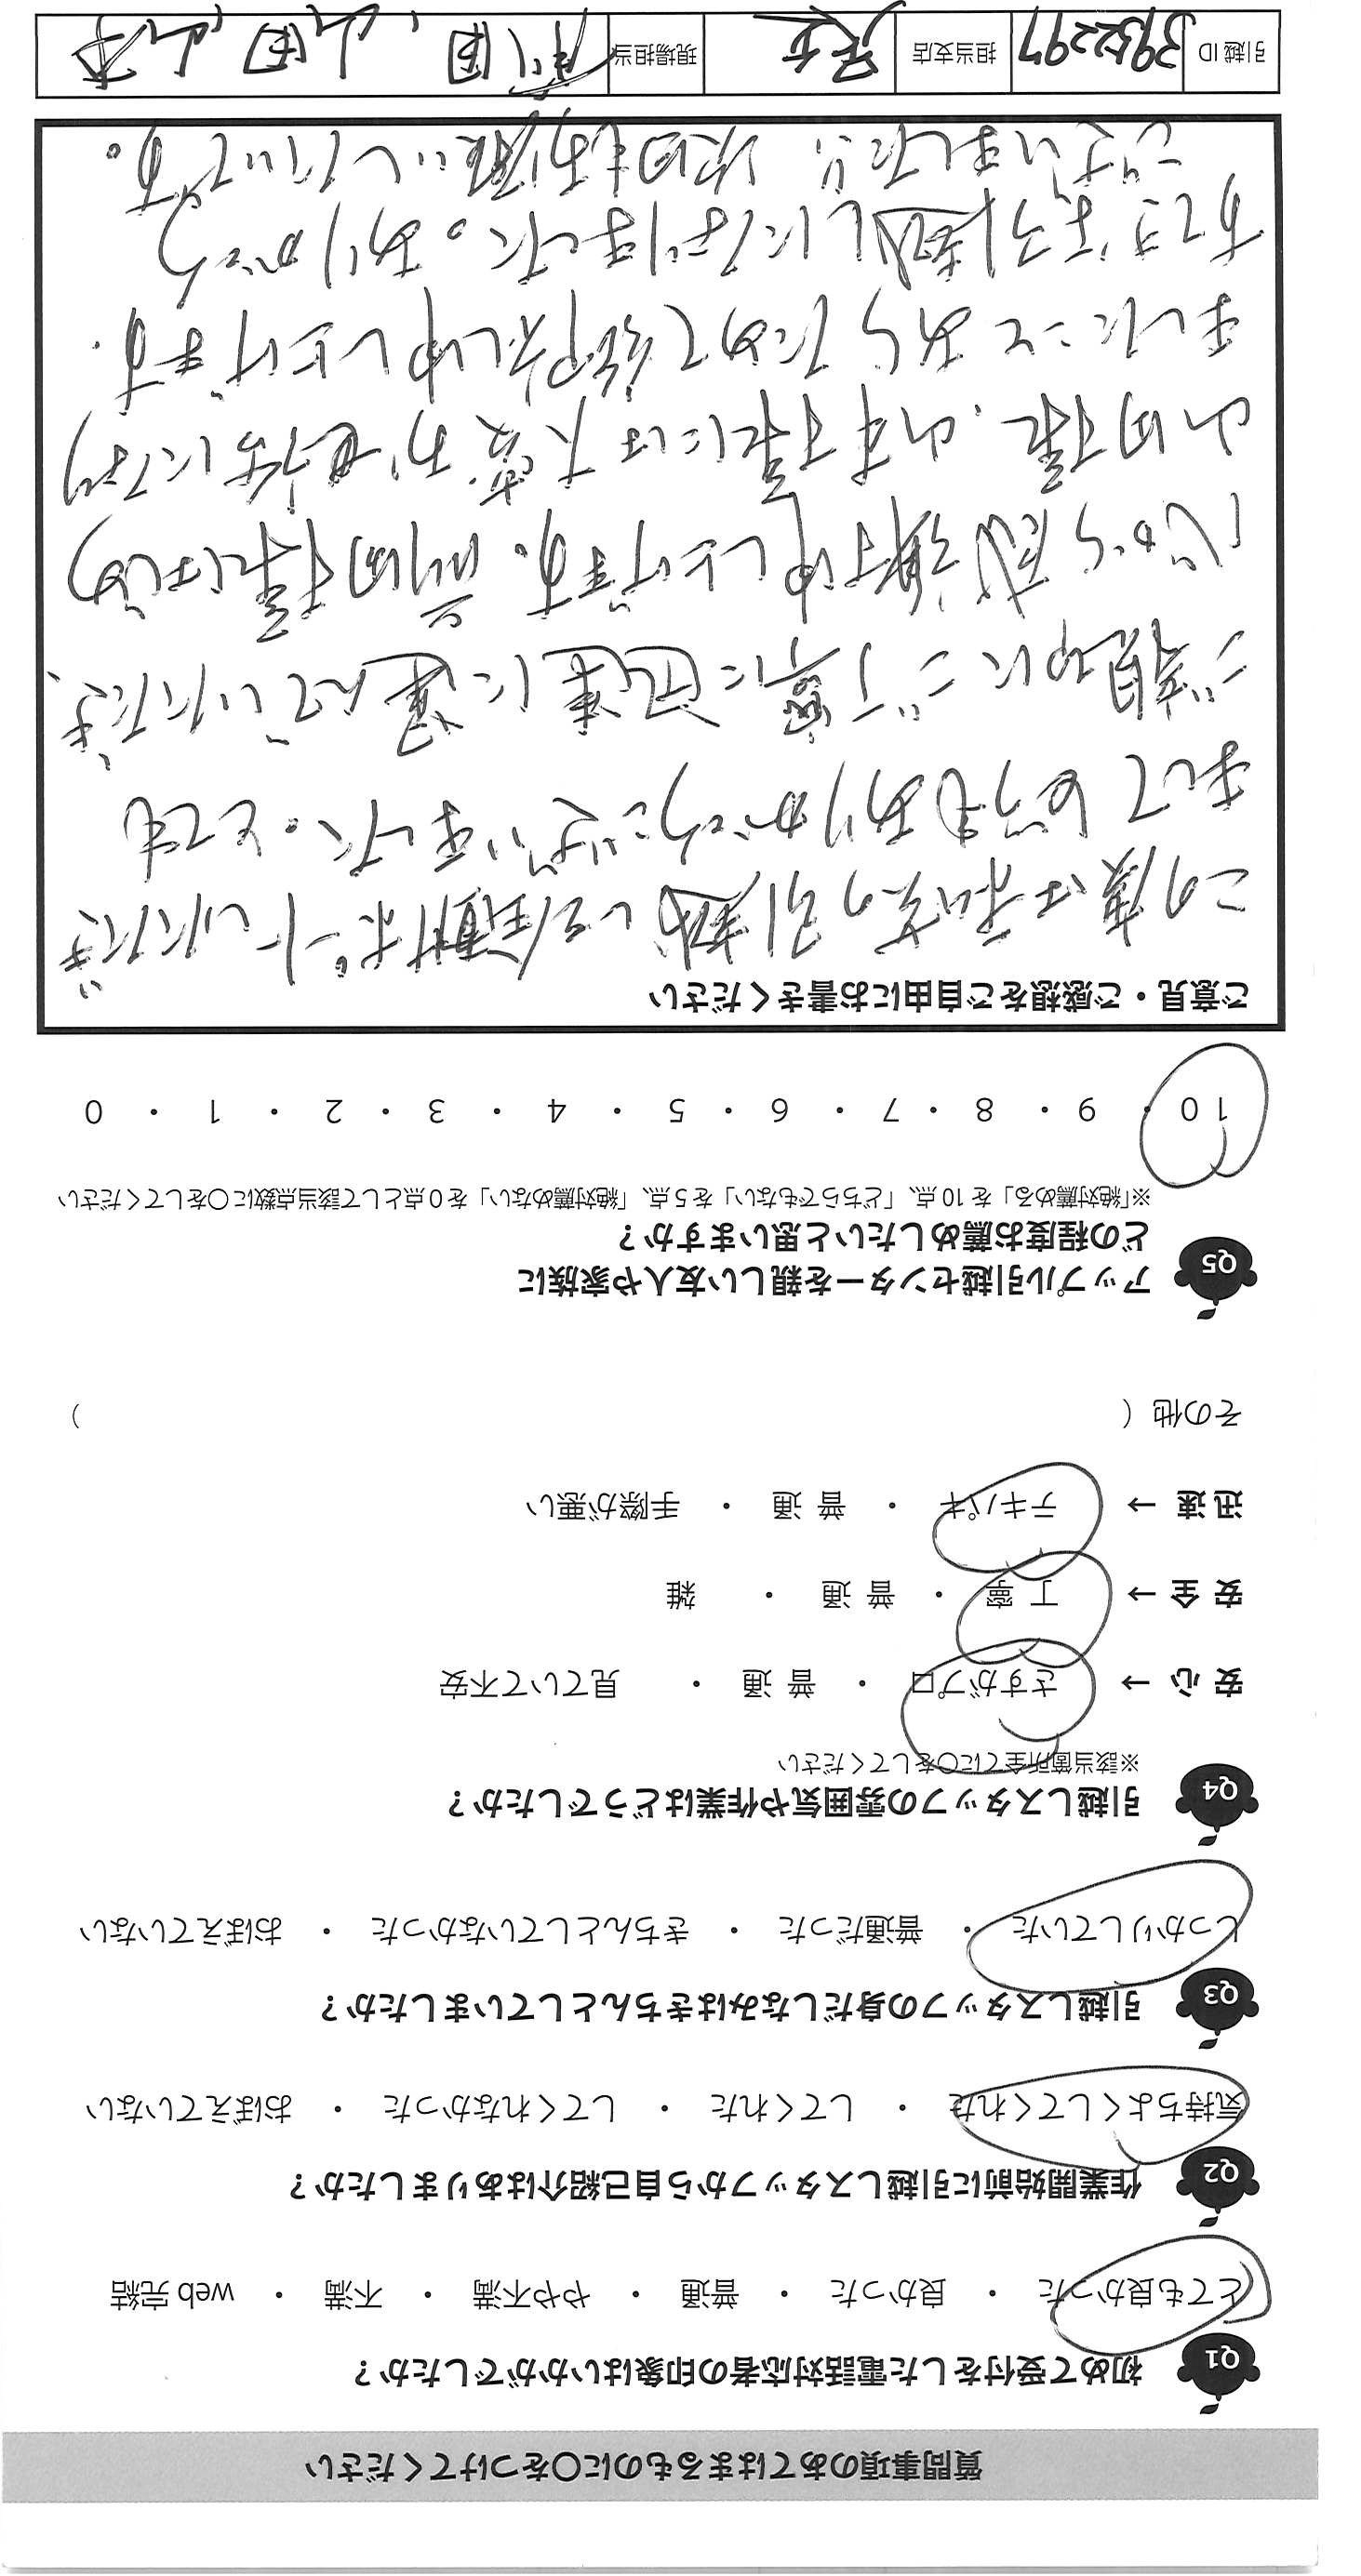 質問事項のあてはまるものに○をつけてください
Q1 初めて受付をした電話対応者の印象はいかがでしたか?
とても良かった ・ 良かった ・ 普通 ・ やや不満 ・ 不満 ・ web 完結
Q2 作業開始前に引越しスタッフから自己紹介はありましたか?
気持ちよくしてくれた ・ してくれた ・ してくれなかった ・ おぼえていない
Q3 引越しスタッフの身だしなみはきちんとしていましたか?
しっかりしていた ・ 普通だった ・ きちんとしていなかった ・ おぼえていない
Q4 引越しスタッフの雰囲気や作業はどうでしたか?
※該当箇所全てに○をしてください
安 心 → さすがプロ ・ 普 通 ・ 見ていて不安
安 全 → 丁 寧 ・ 普 通 ・ 雑
迅 速 → テキパキ ・ 普 通 ・ 手際が悪い
その他 ( )
Q5 アップル引越センターを親しい友人や家族に
どの程度お薦めしたいと思いますか?
※「絶対薦める」を 10 点、「どちらでもない」を 5 点、「絶対薦めない」を 0 点として該当点数に○をしてください
10 ・ 9 ・ 8 ・ 7 ・ 6 ・ 5 ・ 4 ・ 3 ・ 2 ・ 1 ・ 0
ご意見・ご感想をご自由にお書きください
この度は和宅の引越しを全面サポートいただき
まして どうもありがとうございました。とても
ご親切に ご丁寧に迅速に運んでいただき、
心から感謝申し上げます。前田様はじめ
山田様、山本様には大変お世話になり
ましたこと あらためて御礼申し上げます。
安心できる引越しになりました。ありがとう
ございました!! 次回もお願いしたいです。
引越 ID 3952297 担当支店 現場担当 前田、山田、山本